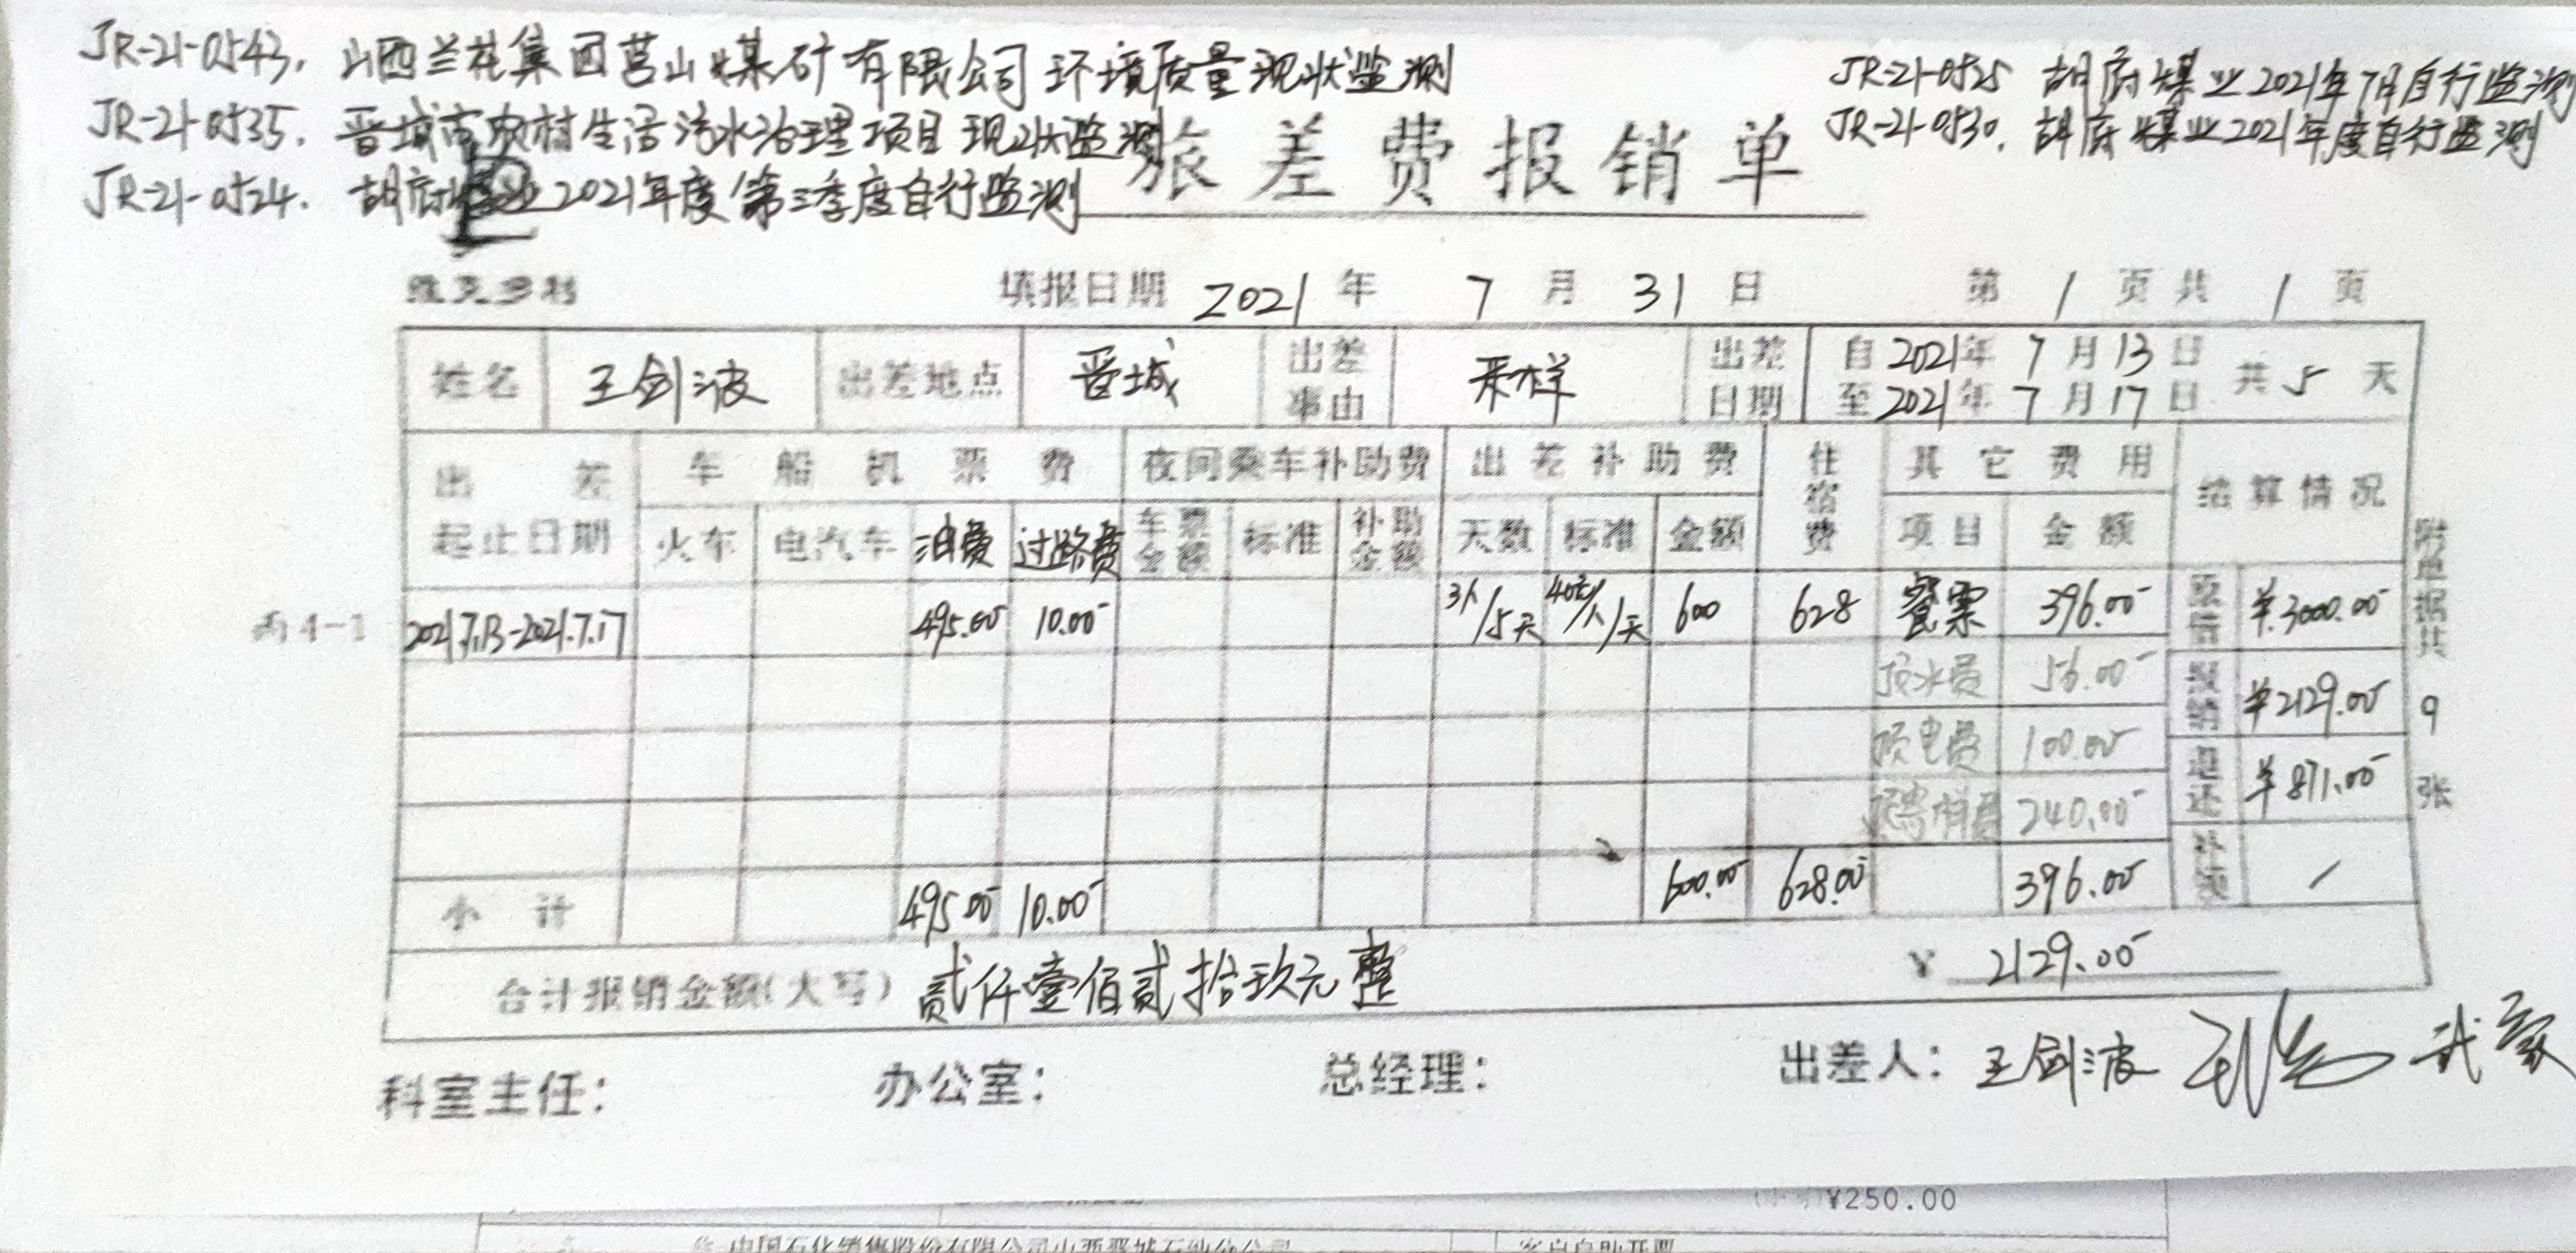 JR-21-0543, 山西兰花集团莒山煤矿有限公司环境质量现状监测
JR-21-0535, 晋城市农村生活污水治理项目现状监测
JR-21-0524. 胡府煤业2021年度第三季度自行监测
JR-21-0525 胡府煤业2021年7月自行监测
JR-21-0530, 胡府煤业2021年度自行监测
旅差费报销单
填报日期 2021 年 7 月 31 日 第 1 页 共 1 页
姓名 王剑波 出差地点 晋城 出差事由 采样 出差日期 自2021年7月13日 至2021年7月17日 共5天
出差起止日期 车船机票费 夜间乘车补助费 出差补助费 住宿费 其它费用 结算情况
火车 电汽车 油费 过路费 车票金额 标准 补助金额 天数 标准 金额 项目 金额
丙4-1 2021.7.13-2021.7.17 495.00 10.00 3人/5天 40元/人/天 600 628 餐票 396.00 ¥3000.00
水费 56.00 ¥2129.00
电费 100.00 退还 ¥871.00
240.00
小计 495.00 10.00 600.00 628.00 396.00 /
附单据共 9 张
合计报销金额(大写) 贰仟壹佰贰拾玖元整 ¥ 2129.00
科室主任: 办公室: 总经理: 出差人: 王剑波 武豪
¥250.00
中国石化销售股份有限公司山西晋城石油分公司 客户自助开票